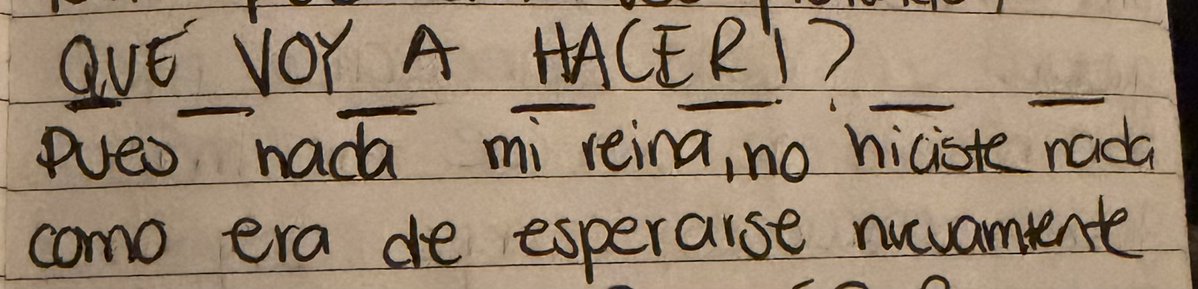 QUÉ VOY A HACER!?
Pues nada mi reina, no hiciste nada
como era de esperarse nuevamente